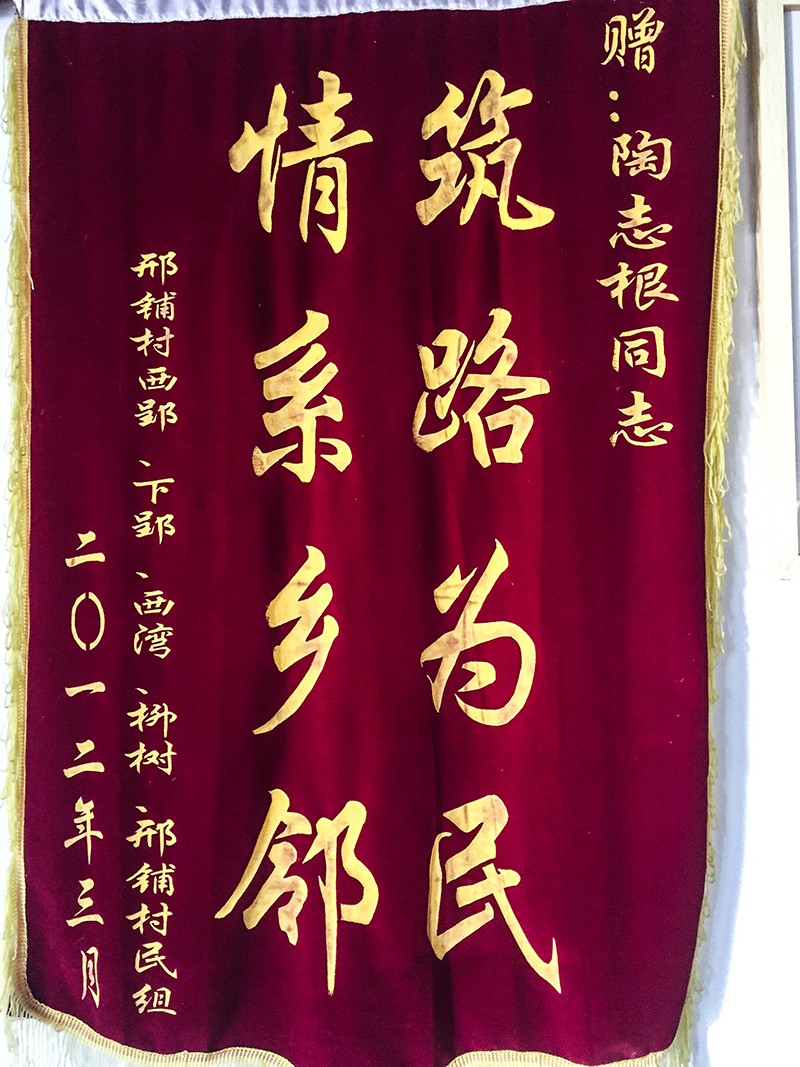 赠：陶志根同志
筑路为民
情系乡邻
邢铺村西郢、下郢、西湾、柳树、邢铺村民组
二〇一二年三月